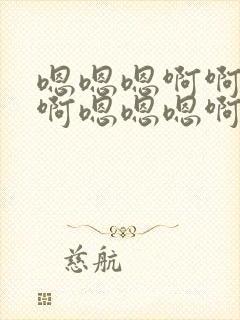 嗯嗯嗯啊啊
啊嗯嗯嗯啊
慈航